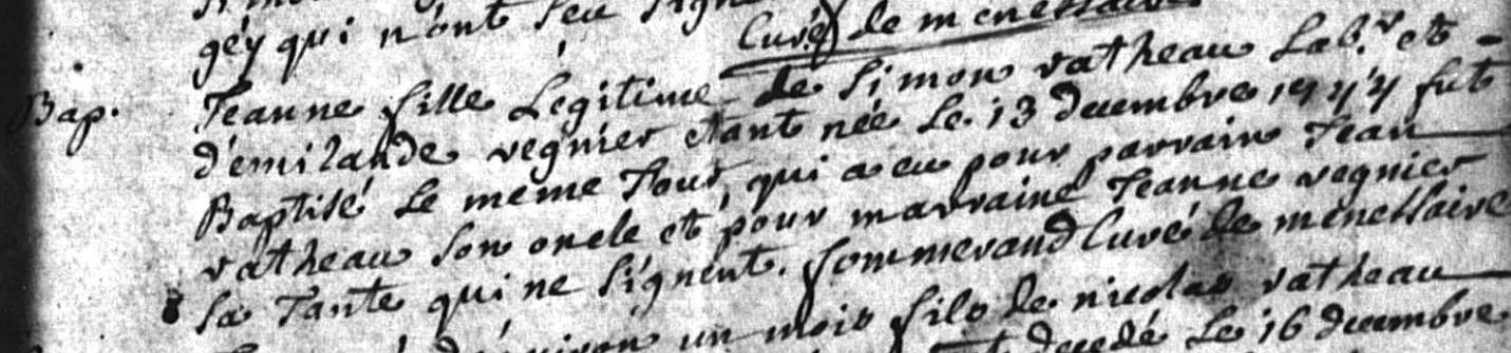 gey qui n'ont sçu signé
Curé de menessaire
Bap.
Jeanne fille Legitime de Simon vatheau Lab.r et -
d'emilande regnier etant née Le 13 decembre 1744 fut
Baptisé Le même Jour, qui a eu pour parrain Jean
vatheau son oncle et pour marraine Jeanne regnier
Sa Tante qui ne Signent. Sommerand Curé de menessaire
un mois fils de nicolas vatheau
decedé Le 16 decembre